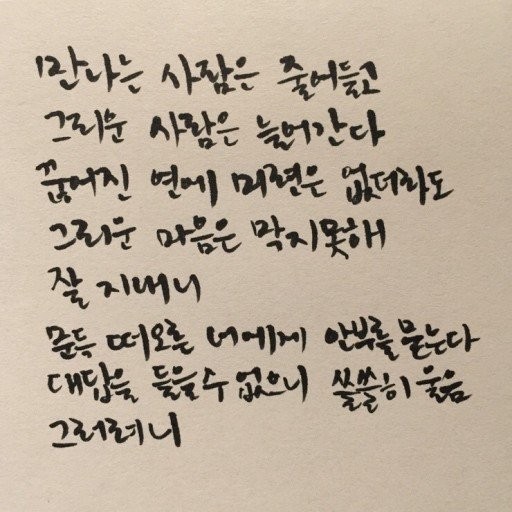 만나는 사람은 줄어들고
그리운 사람은 늘어간다
끊어진 연에 미련은 없더라도
그리운 마음은 막지못해
잘 지내니
문득 떠오른 너에게 안부를 묻는다
대답을 들을수 없으니 쓸쓸히 웃음
그러려니